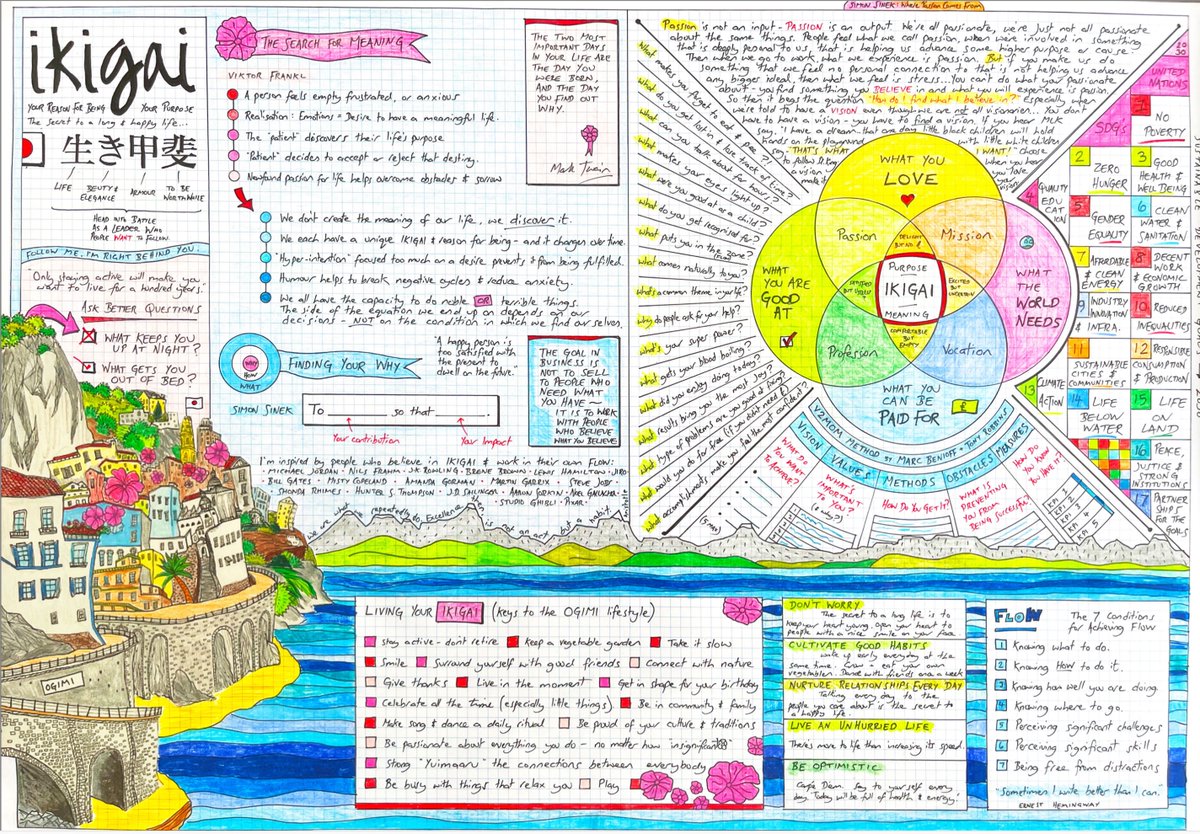 ikigai
YOUR REASON FOR BEING YOUR PURPOSE
The Secret to a long & happy life...
生き甲斐
LIFE
BEUTY &
ELEGANCE
ARMOUR
TO BE
WORTHWHILE
HEAD INTO BATTLE
AS A LEADER WHO
PEOPLE WANT TO FOLLOW.
FOLLOW ME, I'M RIGHT BEHIND YOU.
"Only staying active will make you
want to live for a hundred years."
ASK BETTER QUESTIONS
WHAT KEEPS YOU
UP AT NIGHT?
WHAT GETS YOU
OUT OF BED?
OGIMI
THE SEARCH FOR MEANING
VIKTOR FRANKL
A person feels empty, frustrated, or anxious
Realisation: Emotions = Desire to have a meaningful life.
The "patient" discovers their life's purpose.
"Patient" decides to accept or reject that destiny.
Newfound passion for life helps overcome obstacles & sorrow
We don't create the meaning of our life, we discover it.
We each have a unique IKIGAI & reason for being - and it changes over time.
"Hyper-intention" focused too much on a desire prevents it from being fulfilled.
Humour helps to break negative cycles & reduce anxiety.
We all have the capacity to do noble OR terrible things.
The side of the equation we end up on depends on our
decisions - NOT on the condition in which we find ourselves.
THE TWO MOST
IMPORTANT DAYS
IN YOUR LIFE ARE
THE DAY YOU
WERE BORN,
AND THE DAY
YOU FIND OUT
WHY.
Mark Twain
WHY
HOW
WHAT
FINDING YOUR WHY
"A happy person is
too satisfied with
the present to
dwell on the future."
SIMON SINEK
To ______ so that ______.
Your contribution
Your Impact
THE GOAL IN
BUSINESS IS
NOT TO SELL
TO PEOPLE WHO
NEED WHAT
YOU HAVE -
IT IS TO WORK
WITH PEOPLE
WHO BELIEVE
WHAT YOU BELIEVE
I'm inspired by people who believe in IKIGAI & work in their own FLOW:
MICHAEL JORDAN · NILS FRAHM · J.K ROWLING · BRENE BROWN · LEWIS HAMILTON · JIRO
BILL GATES · MISTY COPELAND · AMANDA GORMAN · MARTIN GARRIX · STEVE JOBS
SHONDA RHIMES · HUNTER S. THOMPSON · J.D SALINGER · AARON SORKIN · NOEL GALLAGHER
· STUDIO GHIBLI · PIXAR ·
We are what we repeatedly do. Excellence then is not an act but a habit.
SIMON SINEK: Where Passion Comes From
Passion is not an input - PASSION is an output. We're all passionate, we're just not all passionate
about the same things. People feel what we call passion when we're involved in something
that is deeply personal to us, that is helping us advance some higher purpose or cause.
Then when we go to work, what we experience is passion. But if you make us do
something that we feel no personal connection to, that is not helping us advance
any bigger ideal, then what we feel is stress... You can't do what your passionate
about - you find something you BELIEVE in and what you will experience is passion.
So then it begs the question "How do I find what I believe in?" Especially when
we're told to have a VISION even though we are not all visionaries. You don't
have to have a vision - you have to find a vision. If you hear MLK
say, "I have a dream - that one day little black children will hold
hands on the playground with little white children
- THAT'S WHAT I WANT!
What makes you forget to eat & pee?
What do you get lost in & lose track of time?
What can you talk about for hours?
What makes your eyes light up?
What were you good at as a child?
What do you get recognised for?
What puts you in the zone?
What comes naturally to you?
What's a common theme in your life?
Why do people ask for your help?
What's your super power?
What gets your blood boiling?
What did you enjoy doing today?
What results bring you the most joy?
What type of problems are you good at fixing?
What would you do for free (if you didn't need £)?
What accomplishments make you feel the most confident?
WHAT YOU
LOVE
Passion
Mission
DELIGHT
BUT NO £
WHAT YOU
ARE
GOOD
AT
SATISFIED
BUT USELESS
PURPOSE
IKIGAI
MEANING
EXCITED
BUT
UNCERTAIN
WHAT
THE
WORLD
NEEDS
COMFORTABLE
BUT
EMPTY
Profession
Vocation
WHAT YOU
CAN BE
PAID FOR
£
V2MOM METHOD BY MARC BENIOFF + TONY ROBBINS
VISION
VALUES
METHODS
OBSTACLES
MEASURES
WHAT DO
YOU WANT
TO ACHIEVE?
WHAT'S
IMPORTANT
TO YOU?
HOW DO YOU GET IT?
WHAT IS
PREVENTING
YOU FROM
BEING SUCCESSFUL?
HOW DO
YOU KNOW
YOU HAVE IT?
KPI 1
KPI 2
KPI 3
KPI 4
KPI 5
20
30
UNITED
NATIONS
SDG's
1
NO
POVERTY
2
ZERO
HUNGER
3
GOOD
HEALTH &
WELL BEING
4
QUALITY
EDU
CATION
5
GENDER
EQUALITY
6
CLEAN
WATER &
SANITATION
7
AFFORDABLE
& CLEAN
ENERGY
8
DECENT
WORK &
ECONOMIC
GROWTH
9
INDUSTRY
INNOVATION
& INFRA.
10
REDUCE
INEQUALITIES
11
SUSTAINABLE
CITIES &
COMMUNITIES
12
RESPONSIBLE
CONSUMPTION
& PRODUCTION
13
CLIMATE
ACTION
14
LIFE
BELOW
WATER
15
LIFE
ON
LAND
16
PEACE,
JUSTICE &
STRONG
INSTITUTIONS
17
PARTNER
SHIPS
FOR THE
GOALS
LIVING YOUR IKIGAI (keys to the OGIMI lifestyle)
Stay active - don't retire
Keep a vegetable garden
Take it slow
Smile
Surround yourself with good friends
Connect with nature
Give thanks
Live in the moment
Get in shape for your birthday
Celebrate all the time (especially little things)
Be in community & family
Make song & dance a daily ritual
Be proud of your culture & traditions
Be passionate about everything you do - no matter how insignificant
Strong "Yuimaaru" the connections between everybody
Be busy with things that relax you
Play
DON'T WORRY
The secret to a long life is to
keep your heart young. Open your heart to
people with a nice smile on your face.
CULTIVATE GOOD HABITS
Wake up early everyday at the
same time. Grow + eat your own
vegetables. Dance with friends once a week
NURTURE RELATIONSHIPS EVERY DAY
Talking every day to the
people you care about is the secret to
a happy life.
LIVE AN UNHURRIED LIFE
There's more to life than increasing its speed.
BE OPTIMISTIC
Carpe Diem. Say to yourself every
day, 'Today will be full of health & energy.'
FLOW
The 7 Conditions
for Achieving Flow
1 Knowing what to do.
2 Knowing HOW to do it.
3 Knowing how well you are doing.
4 Knowing where to go.
5 Perceiving significant challenges
6 Perceiving significant skills
7 Being free from distractions
"Sometimes I write better than I can."
ERNEST HEMINGWAY